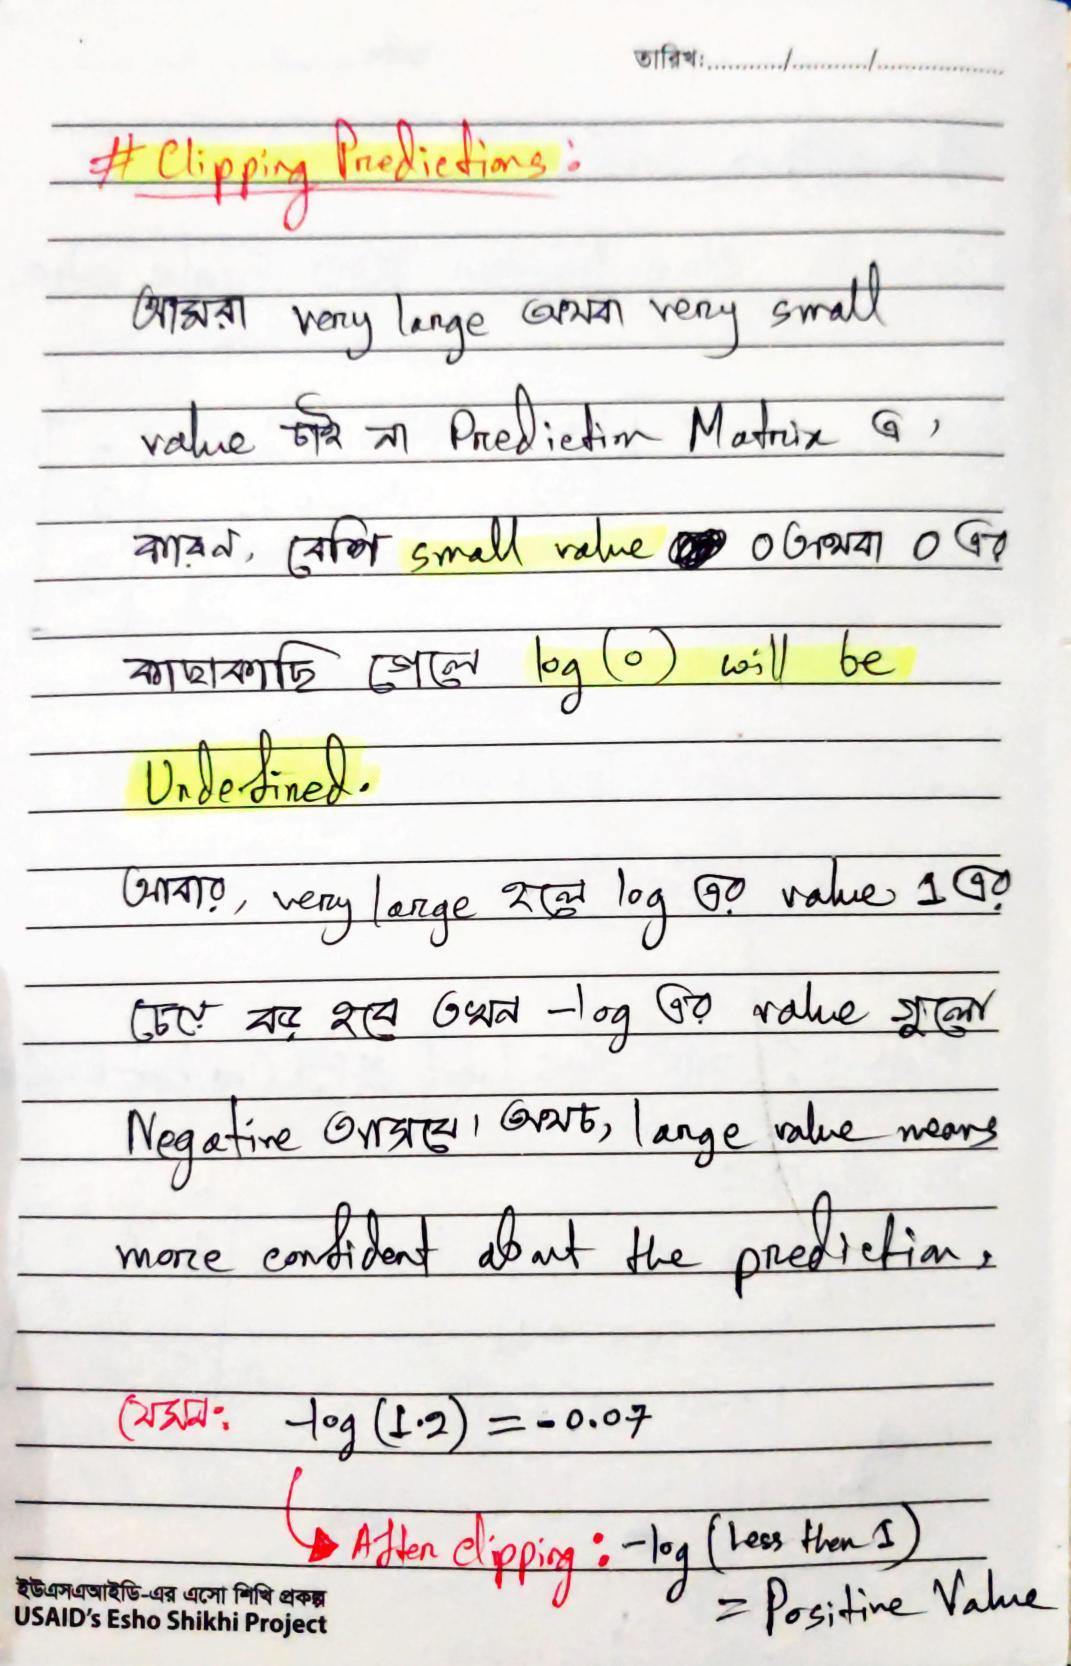 তারিখ:............/............/..................
# Clipping Predictions:
আমরা very large অথবা very small
value চাই না Prediction Matrix এ,
কারন, বেশি small value 0 অথবা 0 এর
কাছাকাছি গেলে log (0) will be
Undefined.
আবার, very large হলে log এর value 1 এর
চেয়ে বড় হবে তখন -log এর value গুলো
Negative আসবে। অথচ, large value means
more confident about the prediction.
যেমন: -log (1.2) = -0.07
After clipping: -log (Less then 1)
= Positive Value
ইউএসএআইডি-এর এসো শিখি প্রকল্প
USAID's Esho Shikhi Project